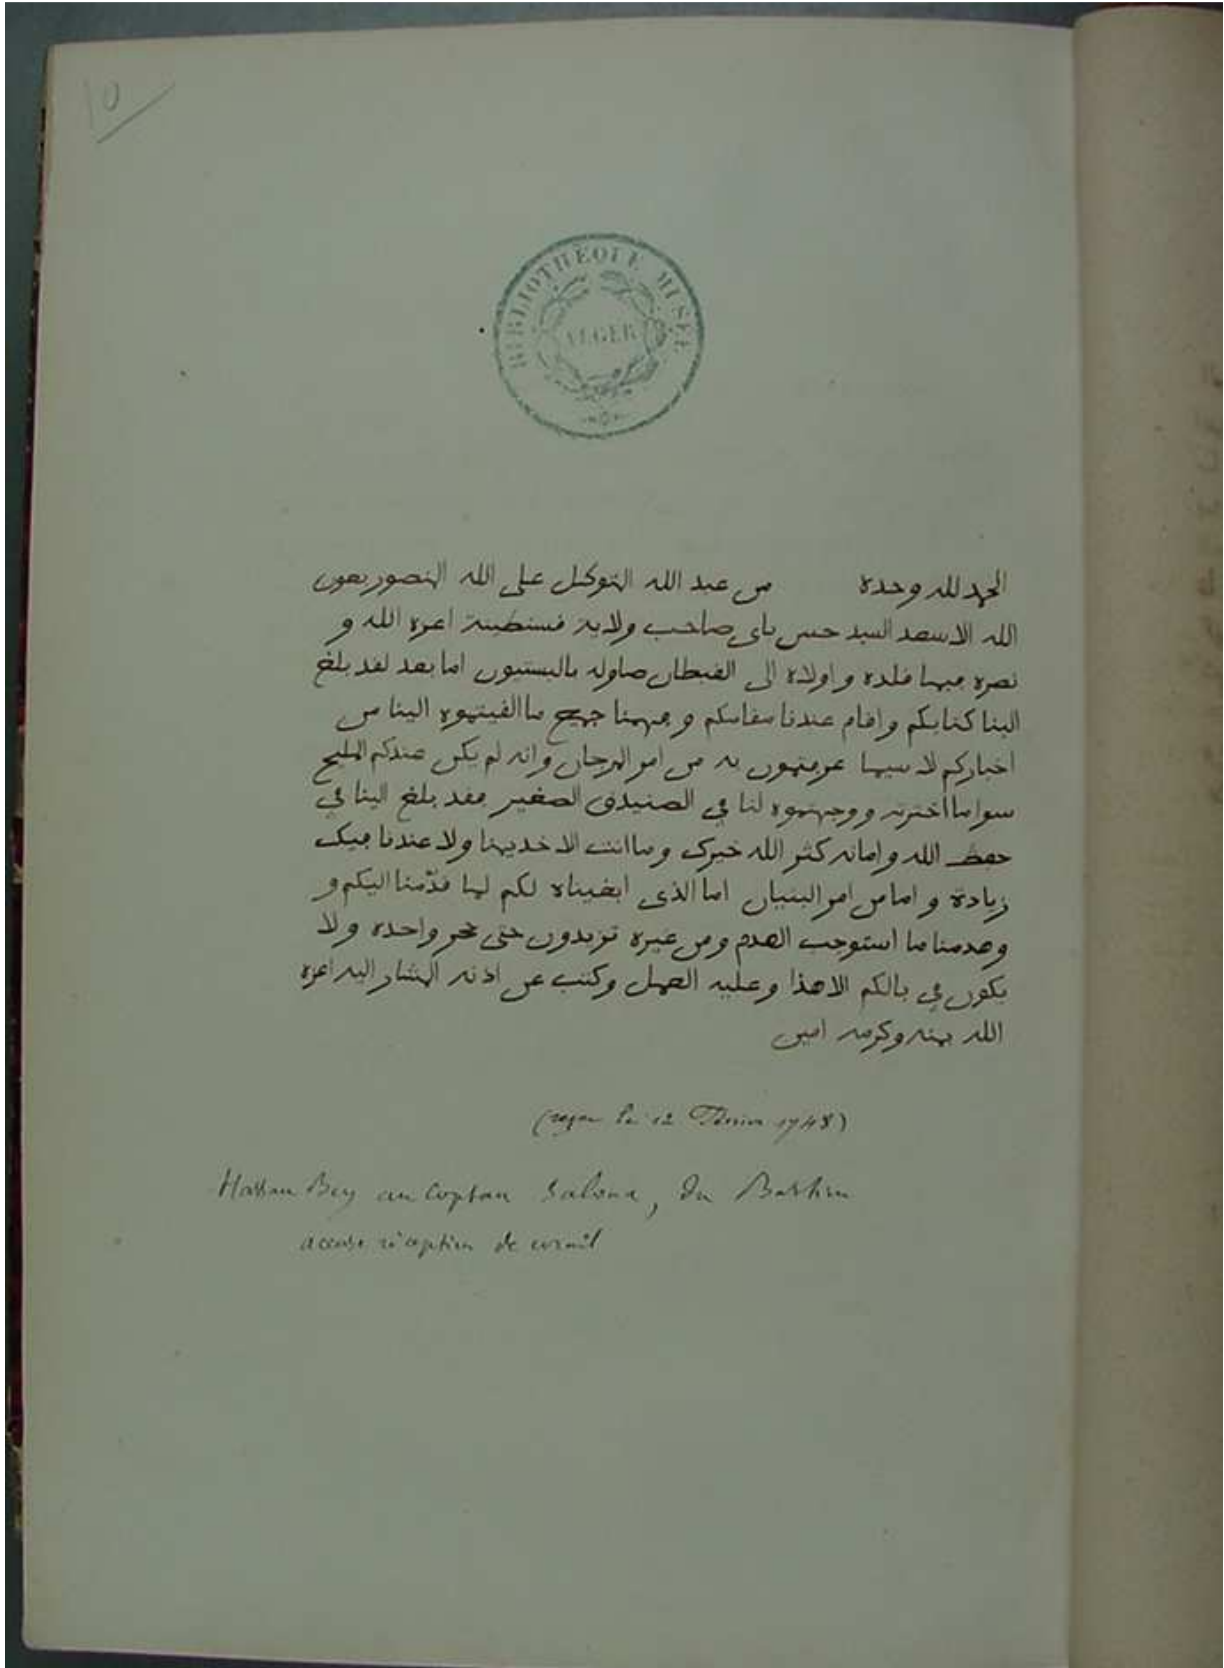 10
BIBLIOTHÈQUE MUSÉE
ALGER
الحمد لله وحده من عبد الله المتوكل على الله المنصور بعون
الله الاسعد السيد حسن باى صاحب ولاية قسنطينة اعزه الله و
نصره فيما قلده و اولاه الى القبطان صاوله بالبستيون اما بعد لقد بلغ
الينا كتابكم و اقام عندنا مقامكم و فهمنا جميع ما القيتموه الينا من
اخباركم لا سيما عرفتمون به من امر المرجان وانه لم يكن عندكم المليح
سوا ما اخترته ووجهتموه لنا في الصنيدق الصغير فقد بلغ الينا في
حفظ الله و امانه كثر الله خيرك وما انت الا خديمنا ولا عندنا فيك
زيادة و اما من امر البنيان اما الذى ابقيناه لكم لما قدّمنا اليكم و
وهدمنا ما استوجب الهدم ومن غيره تزيدون حتى حجر واحده ولا
يكون في بالكم الا هذا وعليه العمل وكتب عن اذنه المشار اليه اعزه
الله بمنه وكرمه امين
(reçue le 12 Février 1748)
Hassan Bey au Captan Salona, du Bastion
accuse réception de corail